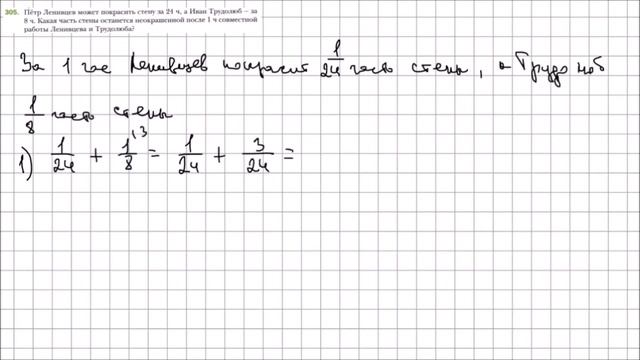 305. Пётр Ленивцев может покрасить стену за 24 ч, а Иван Трудолюб – за
8 ч. Какая часть стены останется неокрашенной после 1 ч совместной
работы Ленивцева и Трудолюба?
За 1 час Ленивцев покрасит 1/24 часть стены, а Трудолюб
1/8 часть стены
1) 1/24 + 1/8 \3 = 1/24 + 3/24 =